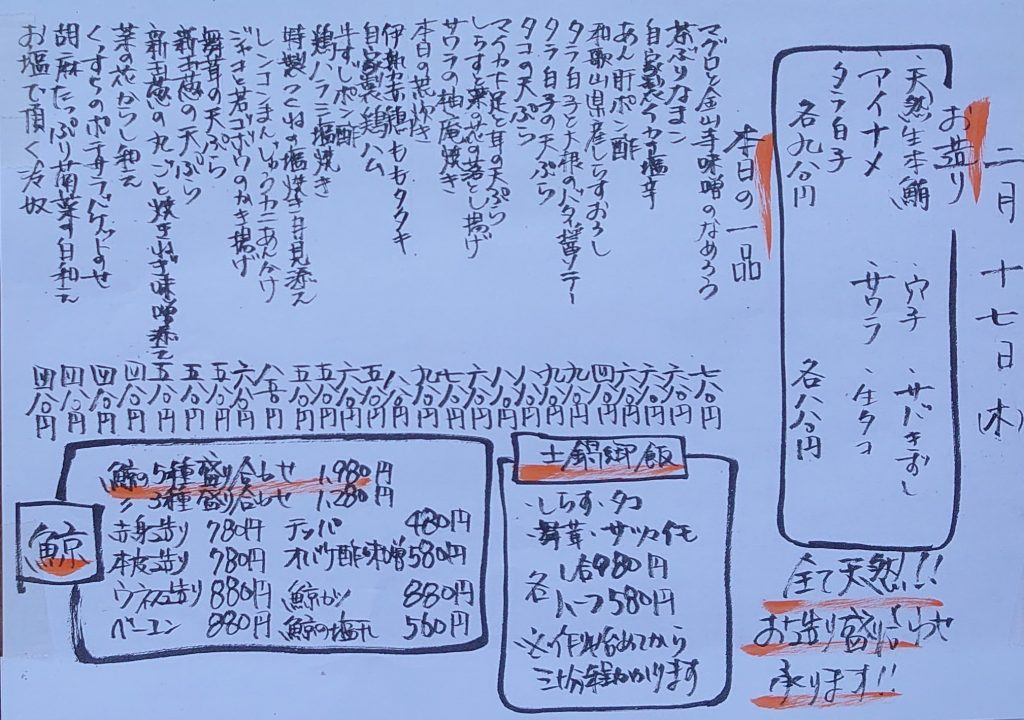 二月十七日(木)
お造り
天然生本鮪 穴子 サバきずし
アイナメ サワラ 生タコ
タラ白子
各九八〇円 各八八〇円
全て天然!!
お造り盛り合わせ
承ります!!
本日の一品
マグロと金山寺味噌のなめろう 七八〇円
茶ぶりなまこ 六八〇円
自家製イカの塩辛 六八〇円
あん肝ポン酢 六八〇円
和歌山県産しらすおろし 四八〇円
タラ白子と大根のバタ醤ソテー 九八〇円
タラ白子の天ぷら 九八〇円
タコの天ぷら 八八〇円
マイカゲ足と耳の天ぷら 八八〇円
しらすと菜の花の落とし揚げ 六八〇円
サワラの柚庵焼き 七八〇円
本日の荒炊き 九八〇円
伊勢赤鶏ももタタキ 八八〇円
自家製鶏ハム 五八〇円
牛すじポン酢 六八〇円
鶏ハラミ塩焼き 五八〇円
特製つくねの塩焼き 黄身添え 五八〇円
レンコンまんじゅうカニあんかけ 八八〇円
ジャコと若ゴボウのかき揚げ 六八〇円
舞茸の天ぷら 五八〇円
新玉葱の天ぷら 五八〇円
新玉葱の丸ごと焼き ねぎ味噌添え 五八〇円
菜の花からし和え 四八〇円
くずもちのポテサラ バゲットのせ 四八〇円
胡麻たっぷり菊菜の白和え 四八〇円
お塩で頂く冷奴 四八〇円
土鍋御飯
・しらす・タコ
・舞茸・サツマイモ
各 1合980円
ハーフ580円
※作り始めてから
三十分程かかります
鯨
鯨の5種盛り合わせ 1,980円
〃 3種盛り合わせ 1,280円
赤身造り 780円 テッパ 480円
本皮造り 780円 オバケ酢味噌 580円
ウネス造り 880円 鯨カツ 880円
ベーコン 880円 鯨の塩汁 560円